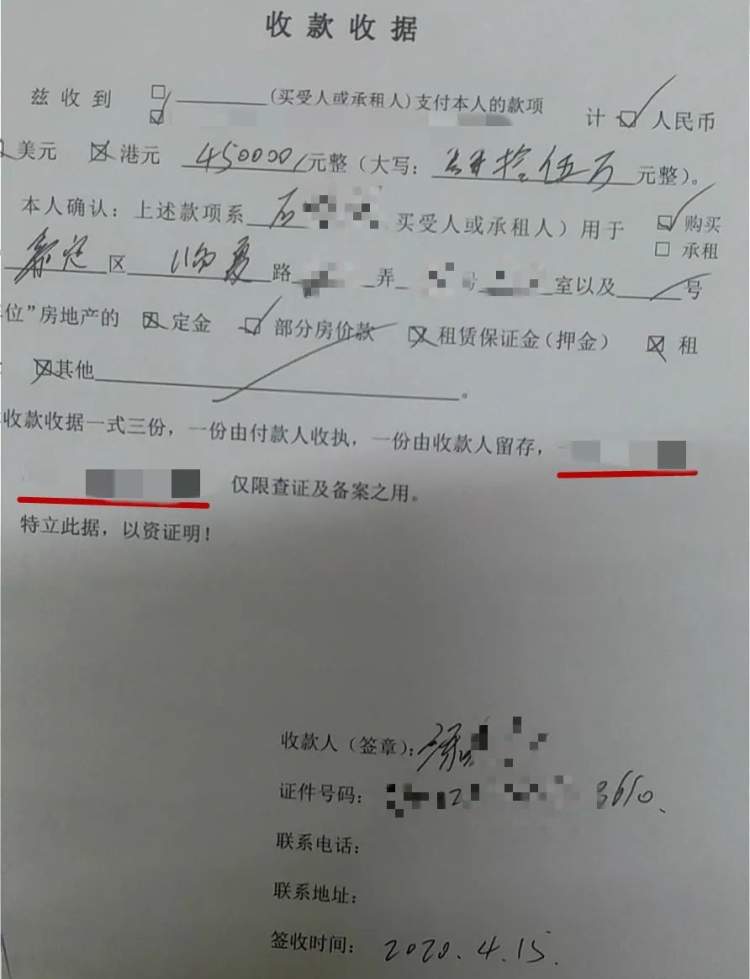 收款收据
兹收到 □ (买受人或承租人)支付本人的款项 计 ☑ 人民币
☑
美元 ☒ 港元 450000 元整（大写： 肆拾伍万 元整）。
本人确认：上述款项系 买受人或承租人）用于 ☑ 购买
□ 承租
区 路 弄 号 室以及 号
位”房地产的 ☒ 定金 ☑ 部分房价款 ☒ 租赁保证金（押金） ☒ 租
☒ 其他 。
收款收据一式三份，一份由付款人收执，一份由收款人留存，
仅限查证及备案之用。
特立此据，以资证明！
收款人（签章）：
证件号码： 3610
联系电话：
联系地址：
签收时间： 2020.4.15.